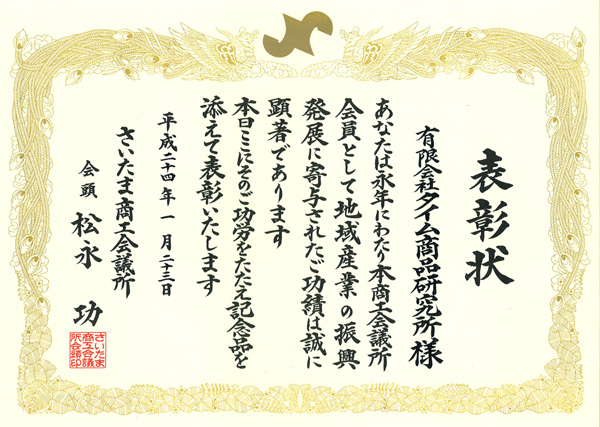 表彰状
有限会社タイム商品研究所様
あなたは永年にわたり本商工会議所
会員として地域産業の振興
発展に寄与されたご功績は誠に
顕著であります
本日ここにそのご功労をたたえ記念品を
添えて表彰いたします
平成二十四年一月二十三日
さいたま商工会議所
会頭 松永 功
さいたま
商工会議
所会頭印